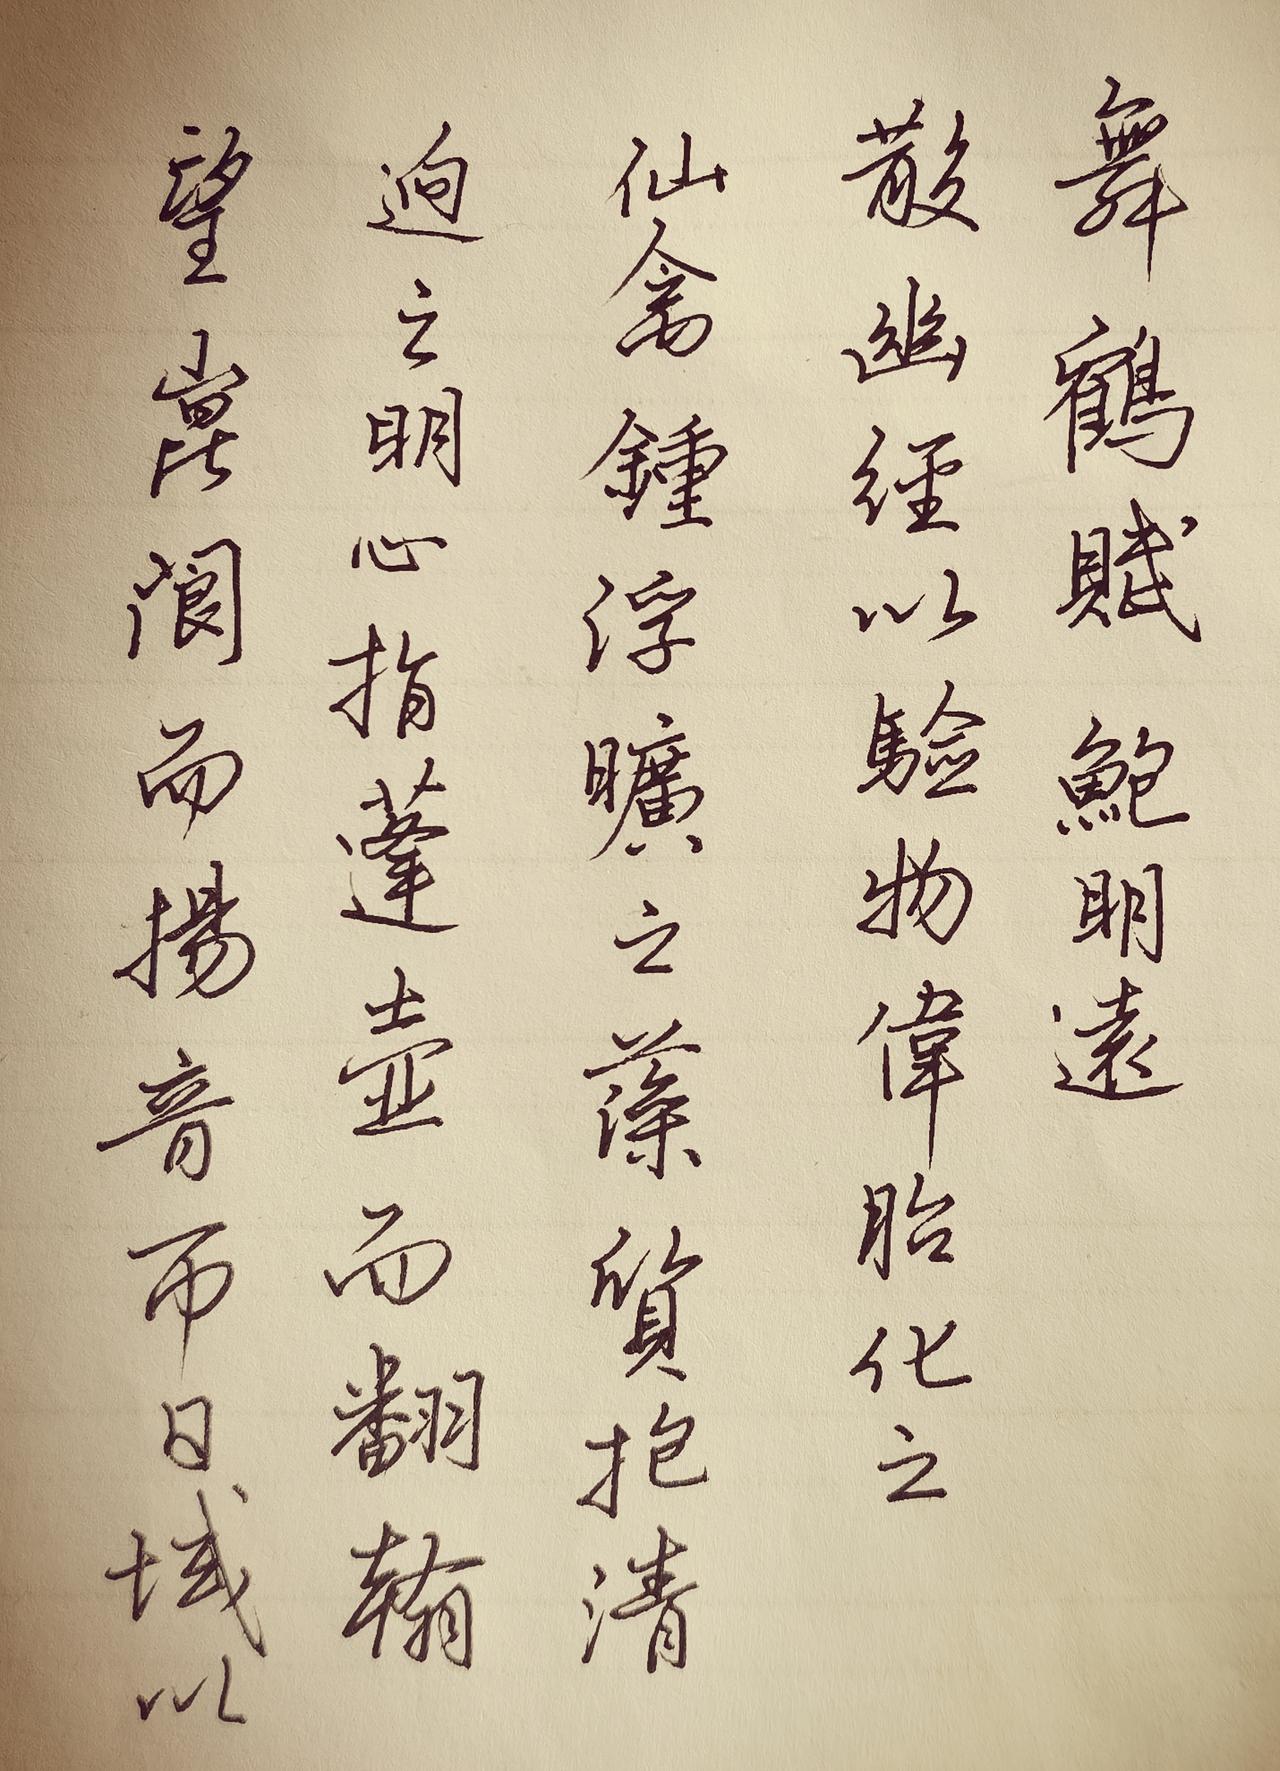 舞鶴賦 鮑明遠
散幽經以驗物偉胎化之
仙禽鍾浮曠之藻質抱清
迥之明心指蓬壺而翻翰
望崑閬而揚音帀日域以